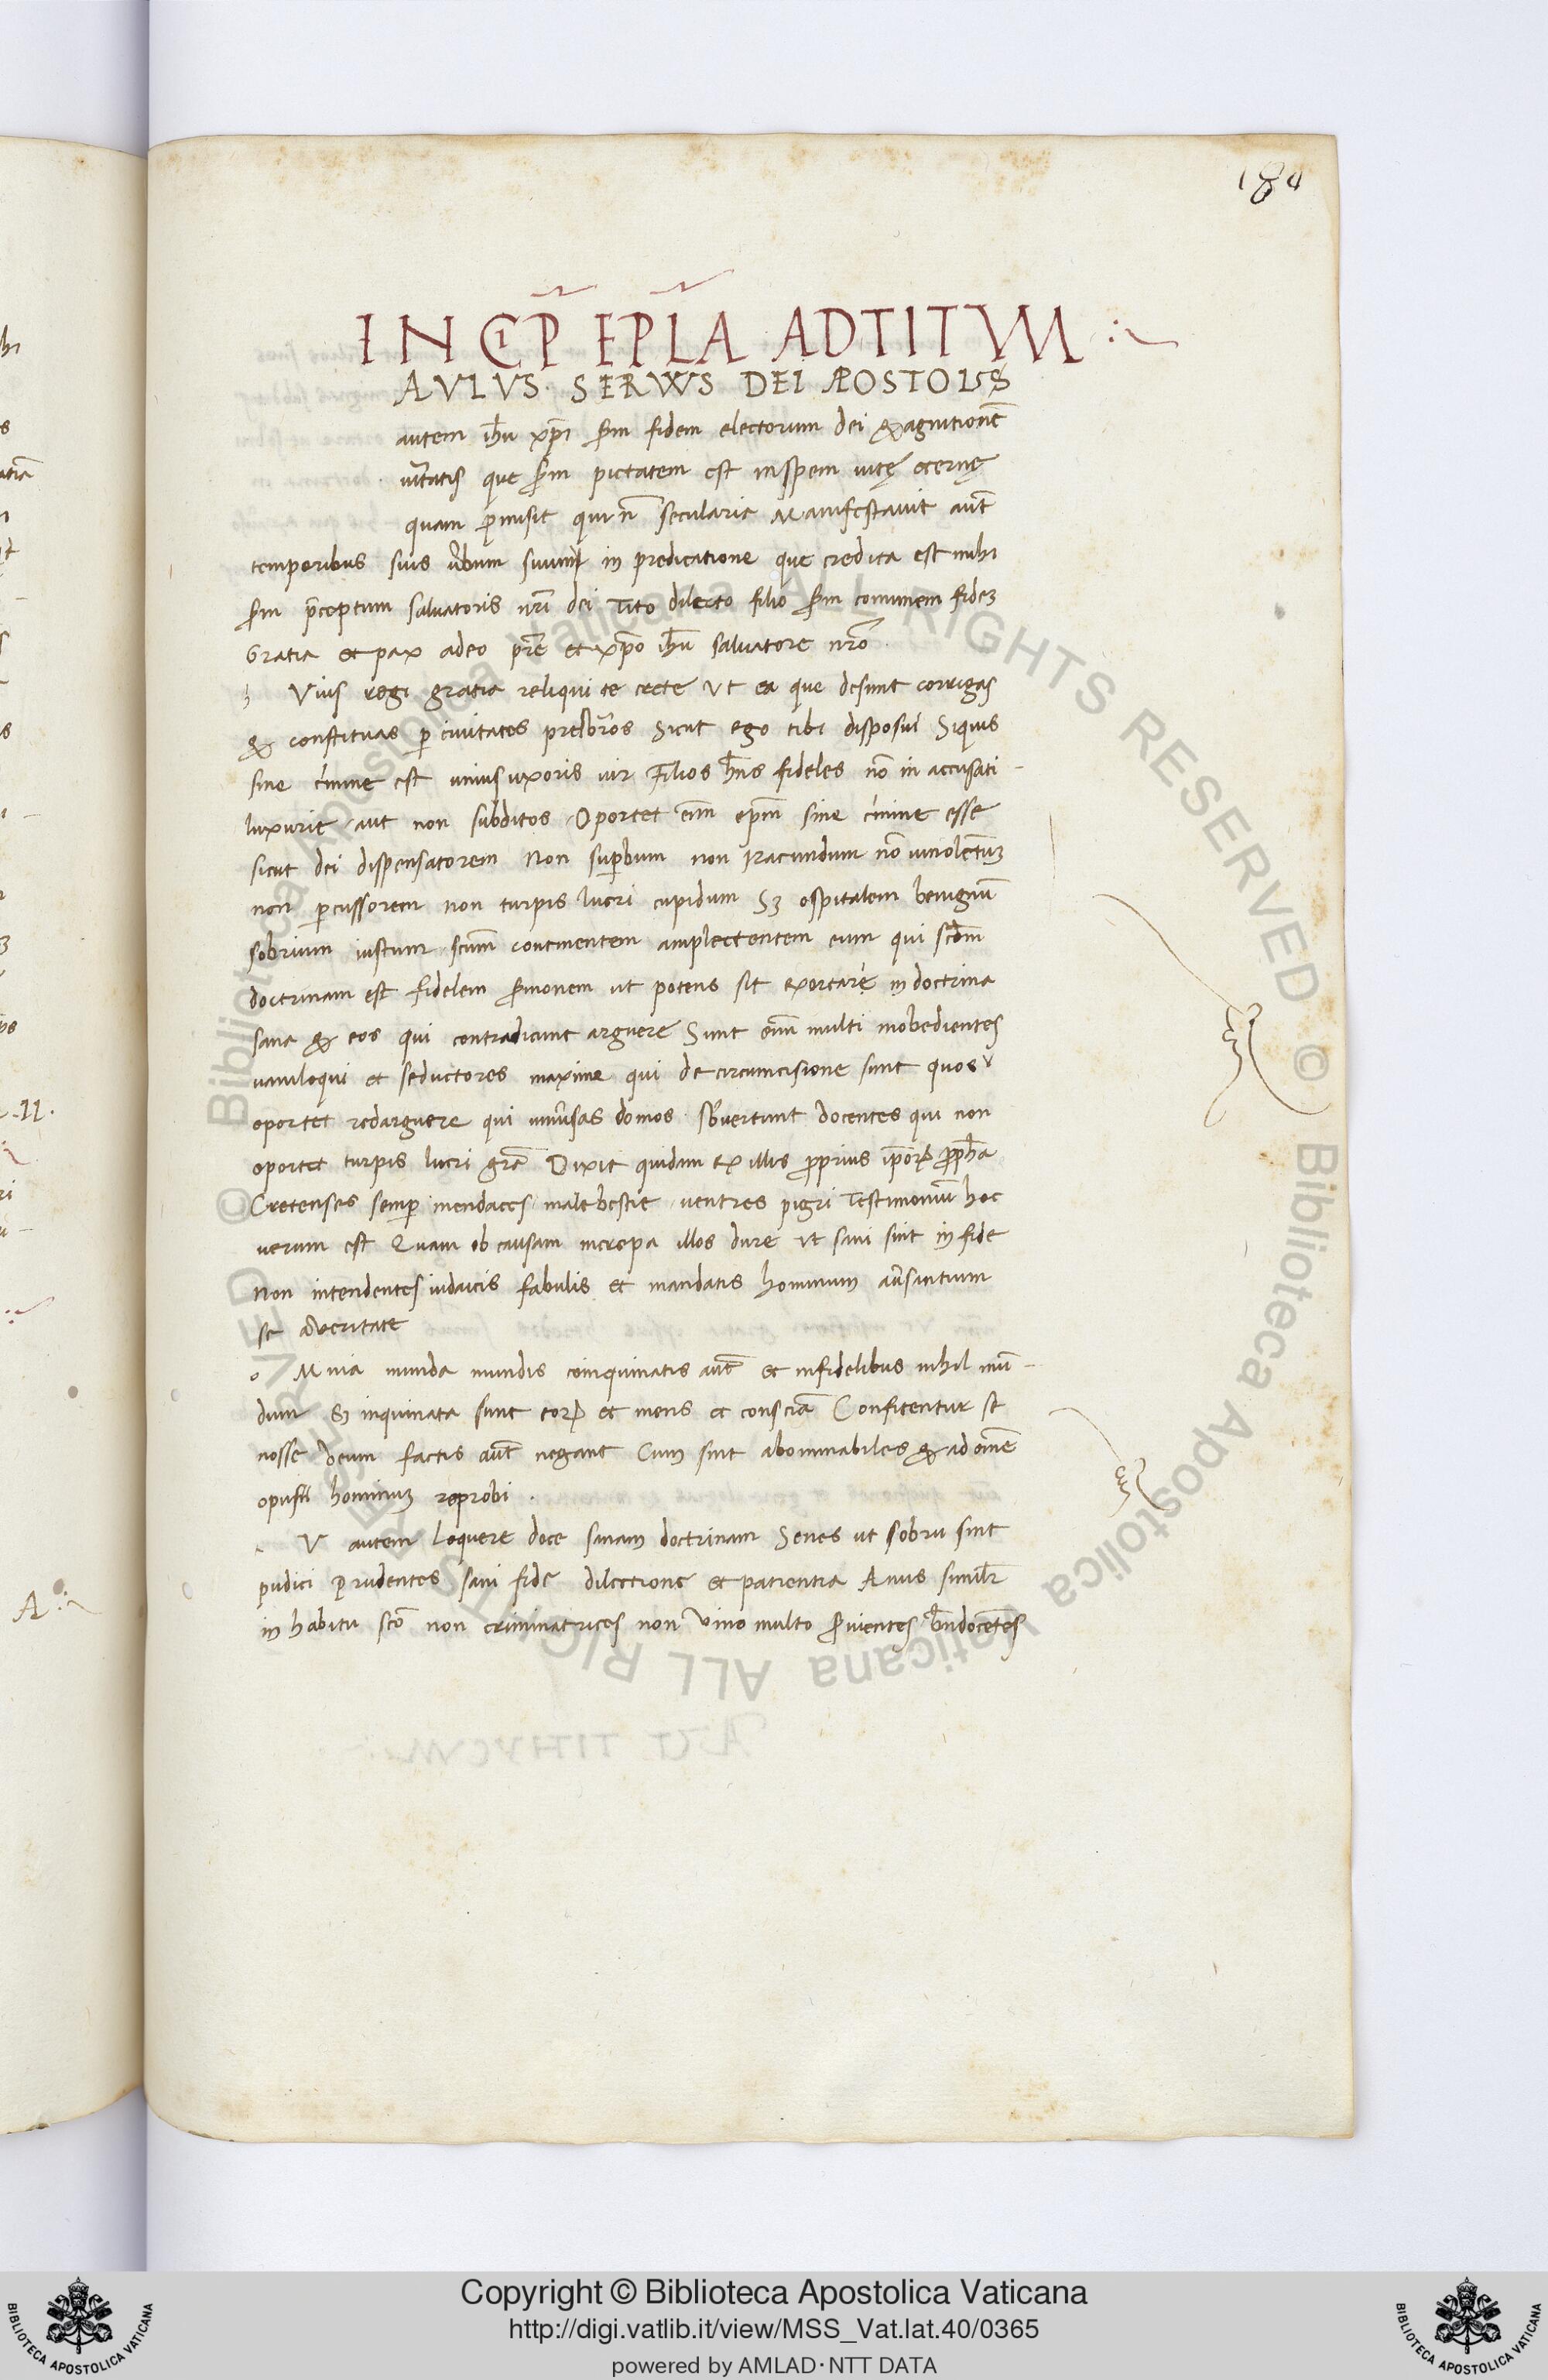 184
INCIP̄ EPL̄A AD TITVM
AVLVS. SERVVS DEI APOSTOLVS
autem ih̄u xp̄i s̄m fidem electorum dei & agnitionē
ūitatis que s̄m pietatem est in spem uitę eternę
quam p̄misit qui n̄ secularia Manifestauit aut̄
temporibus suis ūbum suum in predicatione que credita est mihi
s̄m p̄ceptum saluatoris nr̄i dei Tito dilecto filio s̄m comunem fideʒ
Gratia et pax a deo pr̄e et xp̄o ih̄u saluatore nr̄o.
Vius regi gratia reliqui te crete Vt ea que desunt corrigas
& constituas p̄ ciuitates presbr̄os Sicut ego tibi disposui Siquis
sine c̄mine est unius uxoris uir Filios h̄ns fideles nō in accusati-
luxurie aut non subditos Oportet eīm ep̄m sine c̄mine esse
sicut dei dispensatorem Non sup̄bum non iracundum nō uinolētuʒ
non p̄cussorem non turpis lucri cupidum Sʒ ospitalem benignū
sobrium iustum scūm continentem amplectentem eum qui scd̄m
doctrinam est fidelem s̄monem ut potens sit exortare in doctrina
sana & eos qui contradicunt arguere Sunt eīm multi inobedientes
uaniloqui et seductores maxime qui de circumcisione sunt quos
oportet redarguere qui uniūsas domos sb̄uertunt docentes qui non
oportet turpis lucri grā Dixit quidam ex illis p̄prius ip̄oꝝ p̄ph̄a
Cretenses semp̄ mendaces male bestie uentres pigri Testimoniū hoc
uerum est Quam ob causam increpa illos dure ut sani sint in fide
Non intendentes iudaicis fabulis et mandatis hominum aūsantium
se a ueritate
o Mnia munda mundis coinquinatis aut̄ et infidelibus nihil mū-
dum Sʒ inquinata sunt eoꝝ et mens et consciā Confitentur se
nosse deum factis aut̄ negant Cum sint abominabiles & ad omē
opus hominuʒ reprobi.
V autem loquere doce sanam doctrinam Senes ut sobrii sint
pudici prudentes sani fide dilectione et patientia Anus similr̄
in habitu scō non criminatrices non Vino multo s̄uientes bn̄docētes
Copyright © Biblioteca Apostolica Vaticana
http://digi.vatlib.it/view/MSS_Vat.lat.40/0365
powered by AMLAD·NTT DATA